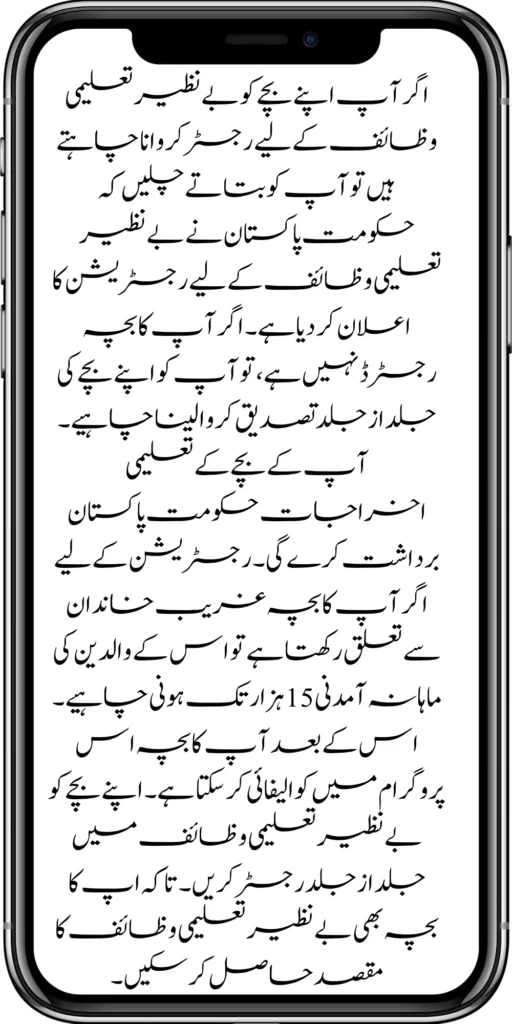 اگر آپ اپنے بچے کو بے نظیر تعلیمی
وظائف کے لیے رجسٹر کروانا چاہتے
ہیں تو آپ کو بتاتے چلیں کہ
حکومت پاکستان نے بے نظیر
تعلیمی وظائف کے لیے رجسٹریشن کا
اعلان کر دیا ہے۔ اگر آپ کا بچہ
رجسٹرڈ نہیں ہے، تو آپ کو اپنے بچے کی
جلد از جلد تصدیق کروا لینا چاہیے۔
آپ کے بچے کے تعلیمی
اخراجات حکومت پاکستان
برداشت کرے گی۔ رجسٹریشن کے لیے
اگر آپ کا بچہ غریب خاندان
سے تعلق رکھتا ہے تو اس کے والدین کی
ماہانہ آمدنی 15 ہزار تک ہونی چاہیے۔
اس کے بعد آپ کا بچہ اس
پروگرام میں کوالیفائی کر سکتا ہے۔ اپنے بچے کو
بے نظیر تعلیمی وظائف میں
جلد از جلد رجسٹر کریں۔ تاکہ اپ کا
بچہ بھی بے نظیر تعلیمی وظائف کا
مقصد حاصل کر سکیں۔